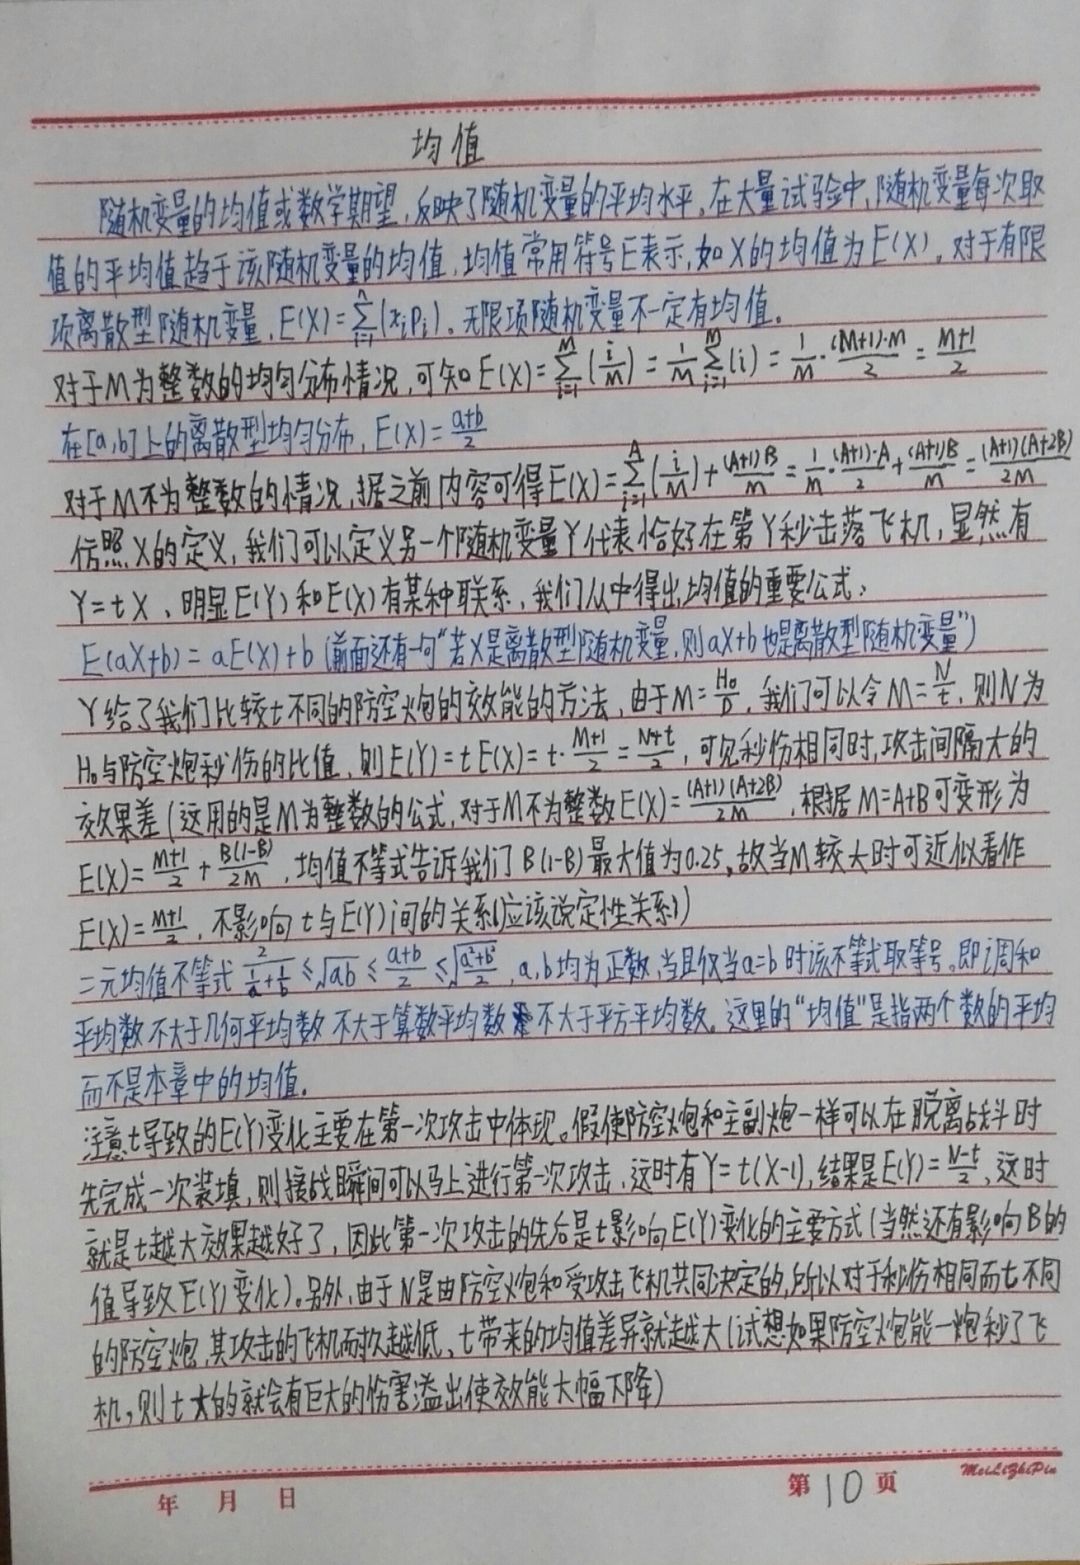 均值
随机变量的均值或数学期望,反映了随机变量的平均水平,在大量试验中,随机变量每次取
值的平均值趋于该随机变量的均值,均值常用符号E表示,如X的均值为E(X)。对于有限
项离散型随机变量,E(X)=∑_{i=1}^{n}(x_i p_i)。无限项随机变量不一定有均值。
对于M为整数的均匀分布情况,可知E(X)=∑_{i=1}^{M}(i/M)=1/M ∑_{i=1}^{M}(i)=1/M·(M+1)·M/2=(M+1)/2
在[a,b]上的离散型均匀分布,E(X)=(a+b)/2
对于M不为整数的情况,据之前内容可得E(X)=∑_{i=1}^{A}(i/M)+(A+1)B/M=1/M·(A+1)·A/2+(A+1)B/M=(A+1)(A+2B)/2M
仿照X的定义,我们可以定义另一个随机变量Y代表恰好在第Y秒击落飞机,显然有
Y=tX,明显E(Y)和E(X)有某种联系,我们从中得出均值的重要公式:
E(aX+b)=aE(X)+b(前面还有一句“若X是离散型随机变量,则aX+b也是离散型随机变量”)
Y给了我们比较t不同的防空炮的效能的方法,由于M=H₀/D,我们可以令M=N/t,则N为
H₀与防空炮秒伤的比值,则E(Y)=tE(X)=t·(M+1)/2=(N+t)/2,可见秒伤相同时,攻击间隔大的
效果差(这用的是M为整数的公式,对于M不为整数E(X)=(A+1)(A+2B)/2M,根据M=A+B可变形为
E(X)=(M+1)/2+B(1-B)/2M,均值不等式告诉我们B(1-B)最大值为0.25,故当M较大时可近似看作
E(X)=(M+1)/2,不影响t与E(Y)间的关系(应该说定性关系))
二元均值不等式 2/(1/a+1/b)≤√ab≤(a+b)/2≤√((a²+b²)/2),a,b均为正数,当且仅当a=b时该不等式取等号。即调和
平均数不大于几何平均数不大于算数平均数不大于平方平均数。这里的“均值”是指两个数的平均
而不是本章中的均值。
注意t导致的E(Y)变化主要在第一次攻击中体现。假使防空炮和主副炮一样可以在脱离战斗时
先完成一次装填,则接战瞬间可以马上进行第一次攻击,这时有Y=t(X-1),结果是E(Y)=(N-t)/2,这时
就是t越大效果越好了,因此第一次攻击的先后是t影响E(Y)变化的主要方式(当然还有影响B的
值导致E(Y)变化)。另外,由于N是由防空炮和受攻击飞机共同决定的,所以对于秒伤相同而t不同
的防空炮,其攻击的飞机耐久越低,t带来的均值差异就越大(试想如果防空炮能一炮秒了飞
机,则t大的就会有巨大的伤害溢出使效能大幅下降)
年 月 日
第10页
MeiLiZhiPin